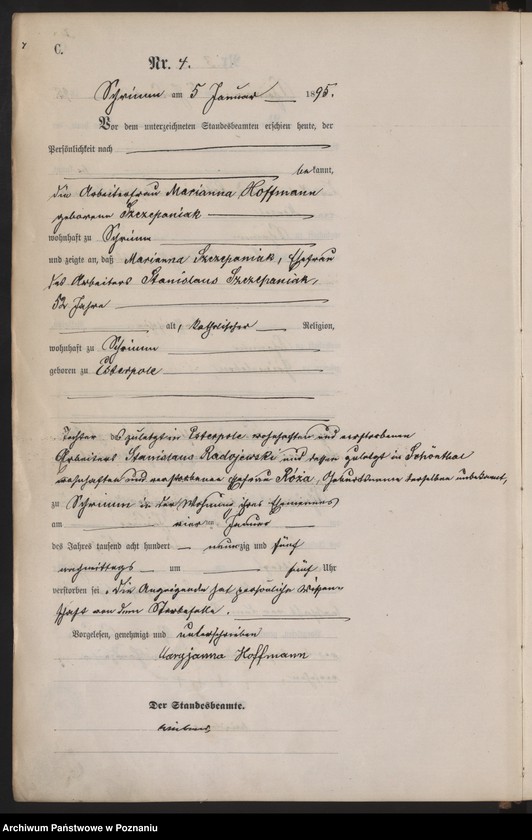 C.
Nr. 4.
Schrimm am 5 Januar 1895.
Vor dem unterzeichneten Standesbeamten erschien heute, der
Persönlichkeit nach
bekannt,
die Arbeiterfrau Marianna Hoffmann
geborene Szczepaniak
wohnhaft zu Schrimm
und zeigte an, daß Marianna Szczepaniak, Ehefrau
des Arbeiters Stanislaus Szczepaniak,
52 Jahre
alt, katholischer Religion,
wohnhaft zu Schrimm
geboren zu Esterpole
Tochter des zuletzt in Esterpole wohnhaften und verstorbenen
Arbeiters Stanislaus Radojewski und dessen zuletzt in Schönthal
wohnhaften und verstorbenen Ehefrau Róża, Geburtsname derselben unbekannt,
zu Schrimm in der Wohnung ihres Ehemannes
am vier ten Januar
des Jahres tausend acht hundert neunzig und fünf
nachmittags um fünf Uhr
verstorben sei. Die Anzeigende hat persönliche Wissen-
schaft von dem Sterbefalle.
Vorgelesen, genehmigt und unterschrieben
Maryjanna Hoffmann
Der Standesbeamte.
Archiwum Państwowe w Poznaniu